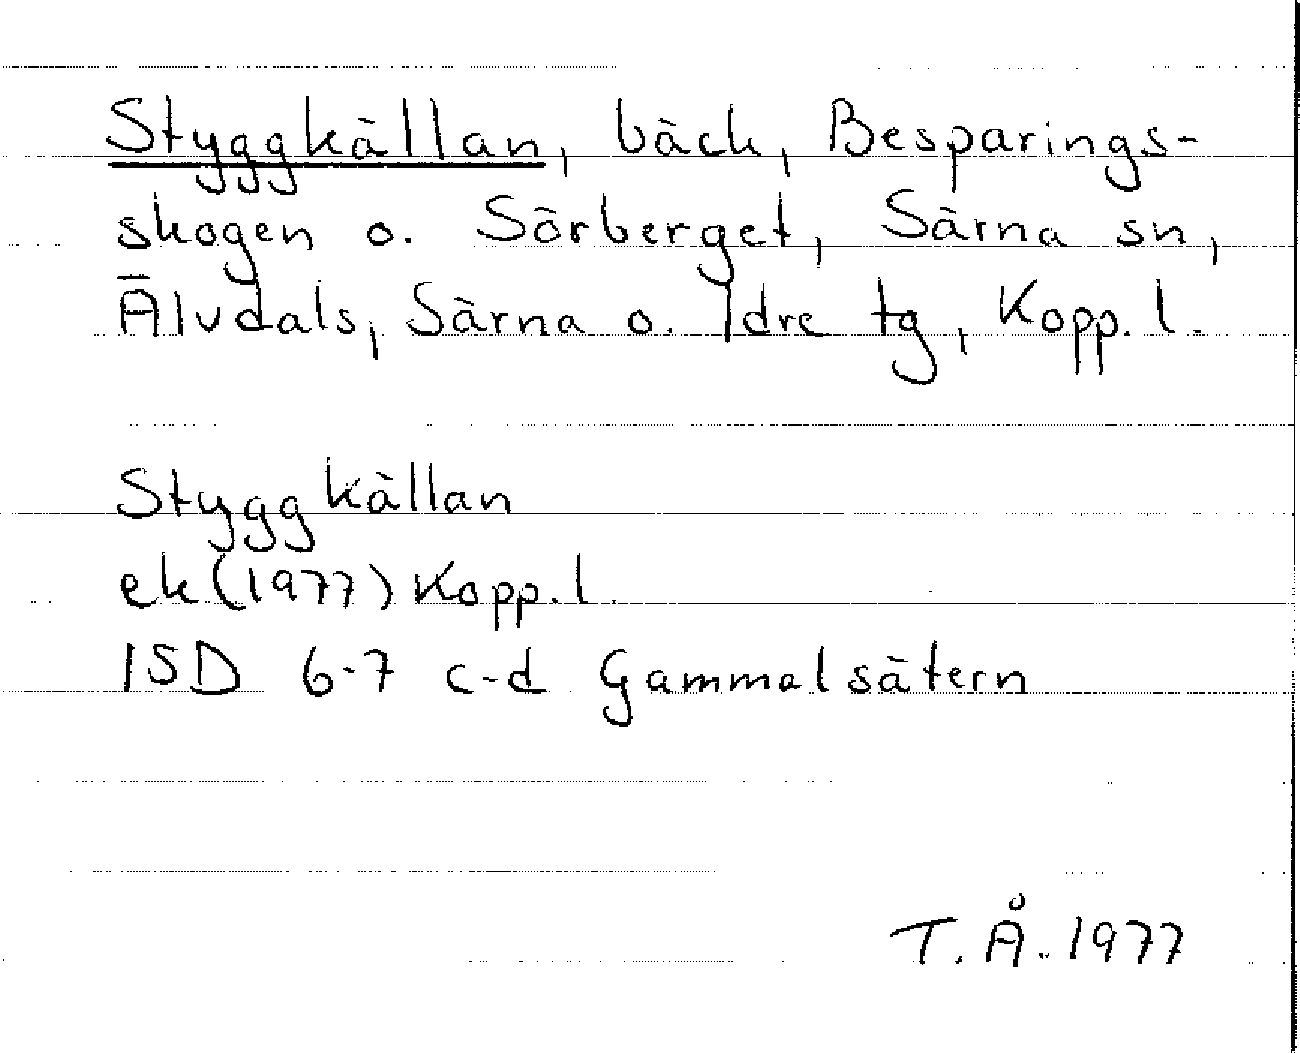 Styggkällan, bäck, Besparings-
skogen o. Sörberget, Särna sn,
Älvdals, Särna o. Idre tg, Kopp. l.
Styggkällan
ek (1977) Kopp. l.
15D 6-7 c-d Gammalsätern
T. Å. 1977